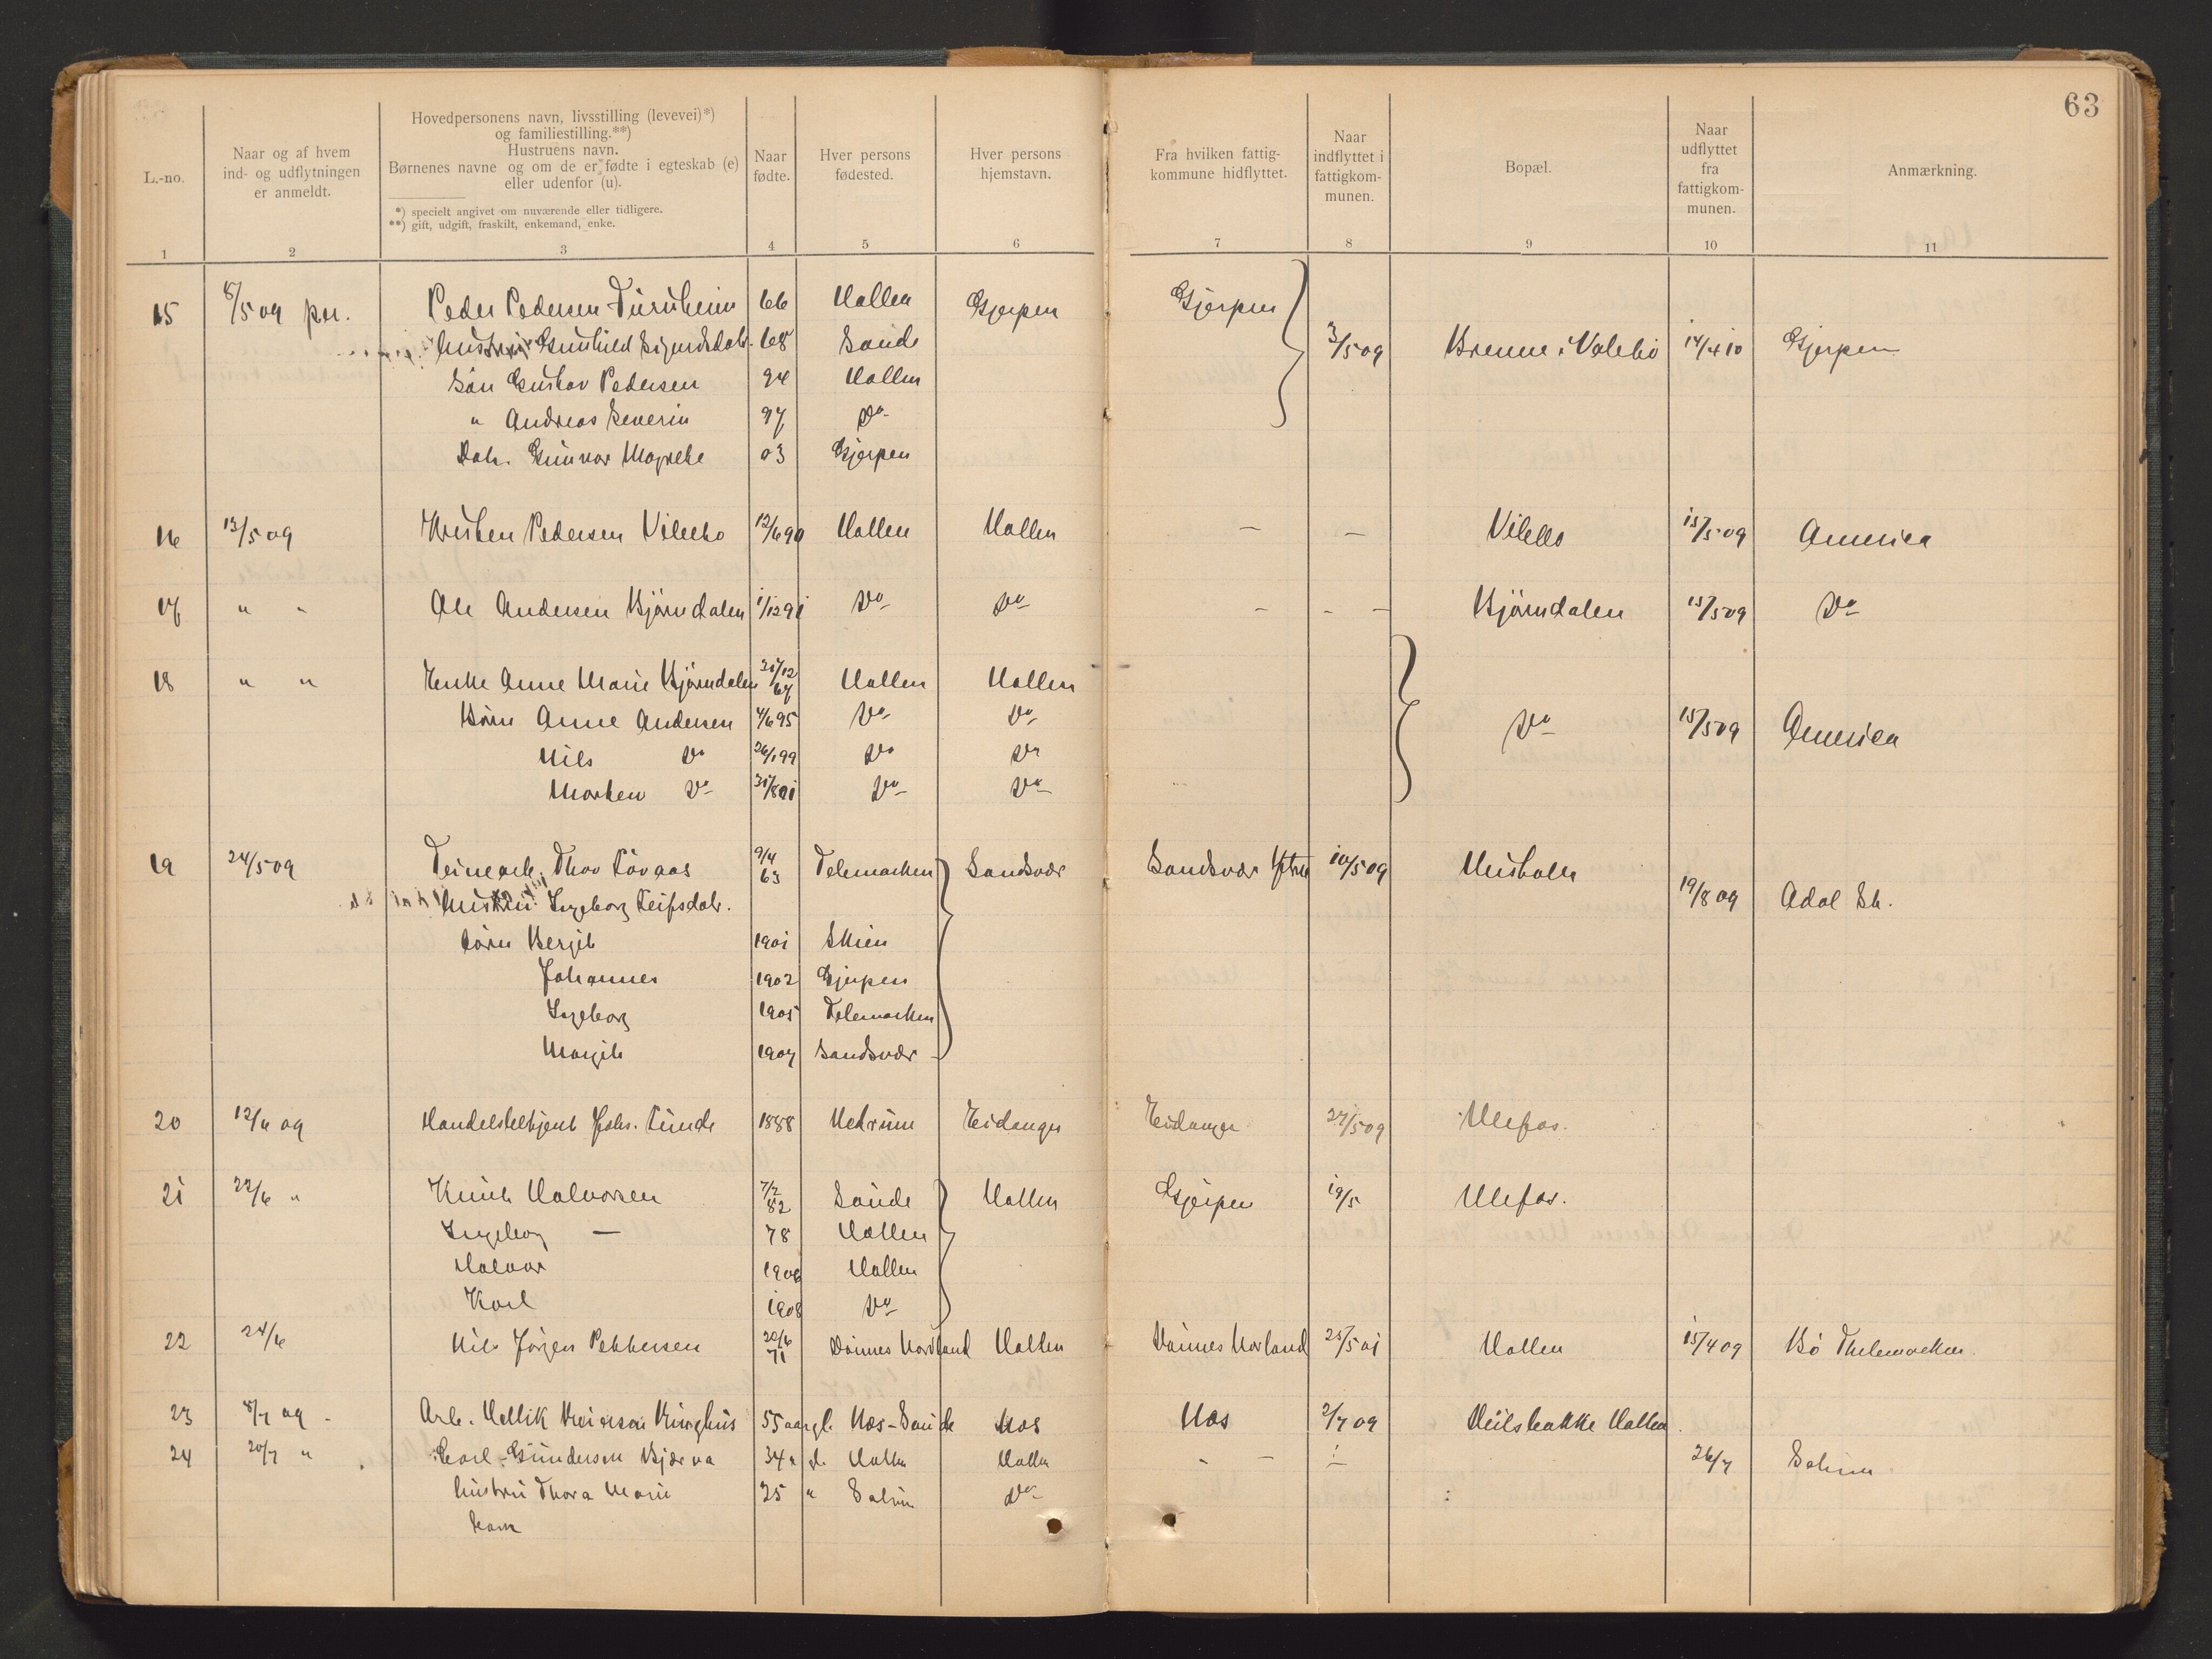 63
L.-no.
Naar og af hvem
ind- og udflytningen
er anmeldt.
Hovedpersonens navn, livsstilling (levevei)*)
og familiestilling.**)
Hustruens navn.
Børnenes navne og om de er fødte i egteskab (e)
eller udenfor (u).
*) specielt angivet om nuværende eller tidligere.
**) gift, ugift, fraskilt, enkemand, enke.
Naar
fødte.
Hver persons
fødested.
Hver persons
hjemstavn.
Fra hvilken fattig-
kommune hidflyttet.
Naar
indflyttet i
fattigkom-
munen.
Bopæl.
Naar
udflyttet
fra
fattigkom-
munen.
Anmærkning.
1 2 3 4 5 6 7 8 9 10 11
15 8/5 09 Peder Pedersen 66 Hollen Gjerpen Gjerpen
Hustru Gunhild Sigurdsdatr. 68 Saude 3/5 09 Brenne i Valebö 14/4 10 Gjerpen
Sön Gustav Pedersen 94 Hollen
" Andreas Severin 97 Do
Datr. Gunvor 03 Gjerpen
16 13/5 09 Kristen Pedersen 12/6 90 Hollen Hollen — — 15/5 09 America
17 " " Ole Andersen Bjørndalen 1/12 91 Do Do - - - Bjørndalen 15/5 09 Do
18 " " Enke Anne Marie Bjørndalen 31/12 67 Hollen Hollen
Börn Anne Andersen 4/6 95 Do Do Do 15/5 09 America
Nils Do 26/1 99 Do Do
Morten Do 31/8 01 Do Do
19 24/5 09 Thov 9/4 63 Telemarken Sandsvær Sandsvær 10/5 09
Hustru Ingeborg Leifsdatr. 19/8 09 Adal
börn Bergit 1901 Skien
Johannes 1902 Gjerpen
Ingeborg 1905 Telemarken
Margit 1907 Sandsvær
20 12/6 09 Handelsbetjent Johs. Lunde 1888 Hedrum Eidanger Eidanger 27/5 09 Ulefos.
21 22/6 " Knut Halvorsen 7/2 82 Saude Hollen Gjerpen 19/5 Ulefos.
Ingeborg — 78 Hollen
Halvor 1906 Hollen
Karl 1908 Do
22 24/6 Nils Jörgen Pettersen 20/6 71 Dönnes Nordland Hollen Dönnes Norland 25/5 01 Hollen 15/4 09 Bö Thelemarken
23 8/7 09 Arb. 55 aar gl. Næs - Saude Næs Næs 2/7 09 Hollen
24 20/7 " Carl Gundersen 34 " gl. Hollen Hollen - - - 26/7 Solum
hustru Thora Marie 25 " Solum Do
barn